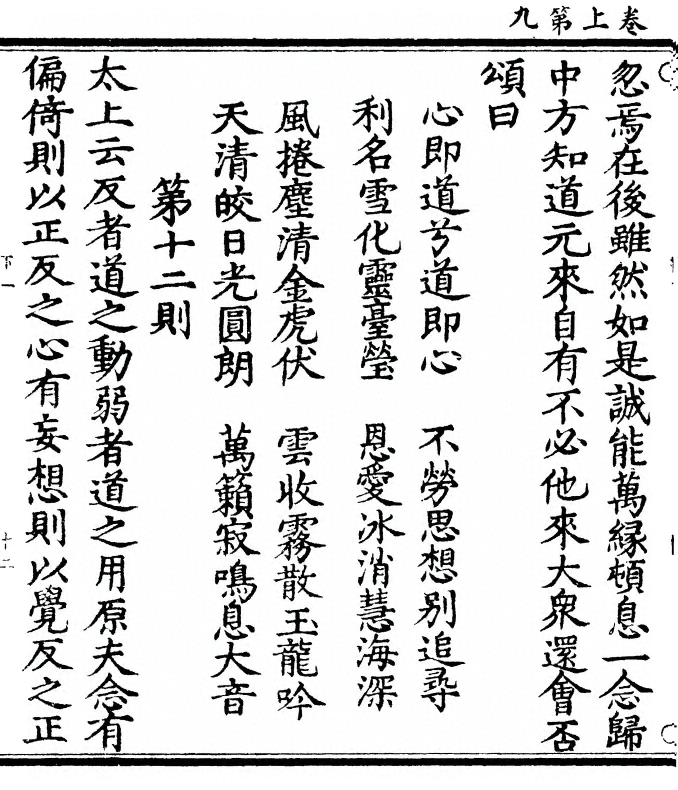 卷上第九
忽焉在後雖然如是誠能萬緣頓息一念歸
中方知道元來自有不必他來大衆還會否
頌曰
心即道兮道即心　不勞思想別追尋
利名雪化靈臺瑩　恩愛冰消慧海深
風捲塵清金虎伏　雲收霧散玉龍吟
天清皎日光圓朗　萬籟寂鳴息大音
第十二則
太上云反者道之動弱者道之用原夫念有
偏倚則以正反之心有妄想則以覺反之正